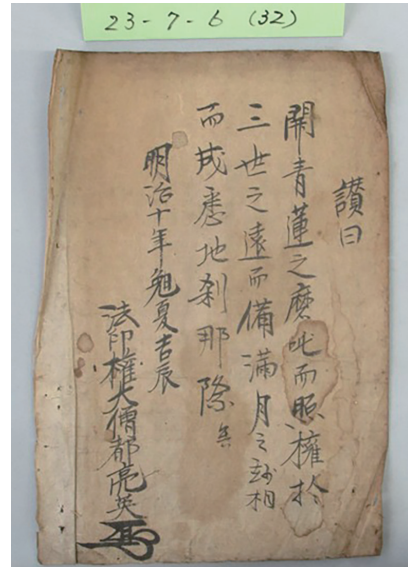 23-7-6 (32)
讃曰
開青蓮之麽吒而照擁於
三世之遠而備満月之
相
而成悉地刹那際矣
明治十年夏吉辰
法印権大僧都亮英